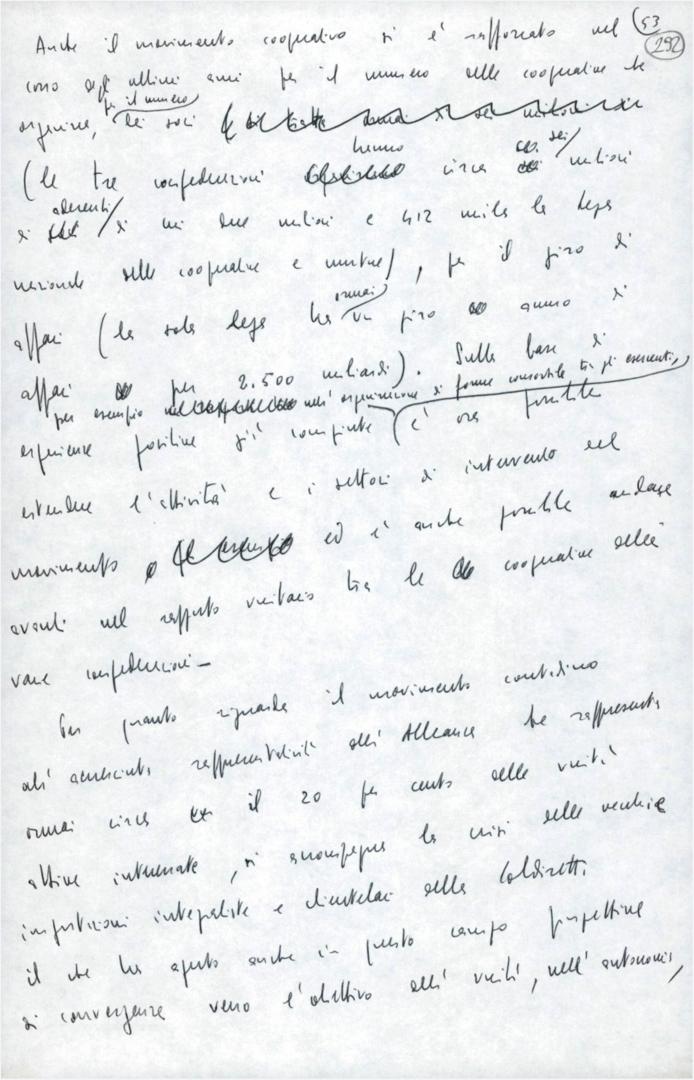 53
292
Anche il movimento cooperativo si è rafforzato nel
corso degli ultimi anni per il numero delle cooperative che
organizza, per il numero dei soci
(le tre confederazioni hanno circa sei milioni
di aderenti di cui due milioni e 412 mila la Lega
nazionale delle cooperative e mutue), per il giro di
affari (la sola Lega ha ormai un giro annuo di
affari per 2.500 miliardi). Sulla base di
esperienze positive già compiute per esempio nell'organizzazione di forme consortili tra gli esercenti, è ora possibile
estendere l'attività e i settori di intervento del
movimento ed è anche possibile andare
avanti nel rapporto unitario tra le cooperative delle
varie confederazioni —
Per quanto riguarda il movimento contadino
all'accresciuta rappresentatività dell'Alleanza che rappresenta
ormai circa il 20 per cento delle unità
attive interessate, si accompagna la crisi delle vecchie
impostazioni integraliste e clientelari della Coldiretti
il che ha aperto anche in questo campo prospettive
di convergenza verso l'obiettivo dell'unità, nell'autonomia,